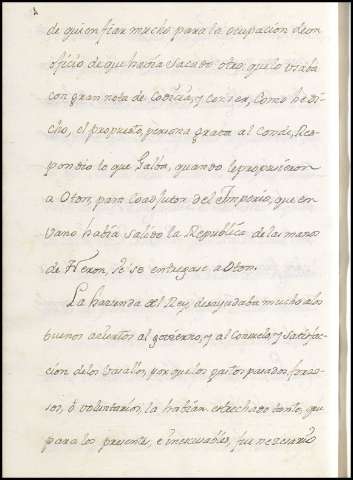 de quien fiar mucho para la ocupacion de un
oficio de que havia sacado otro, que lo usaba
con gran nota de Codicia, y con ser, como he di-
cho, el propuesto, persona grata al Conde, Res-
pondio lo que Galba, quando le propusieron
a Oton, para Coadjutor del Imperio, que en
vano havia salido la Republica de las manos
de Neron, si se entregase a Oton.
La hazienda del Rey, desayudaba mucho a los
buenos aciertos al govierno, y al Consuelo, y satisfa-
cion de los Vasallos, porque los gastos pasados, forzo-
sos, ô voluntarios, la habian estrechado tanto, que
para los presentes, e inexcusables, fue nezesario